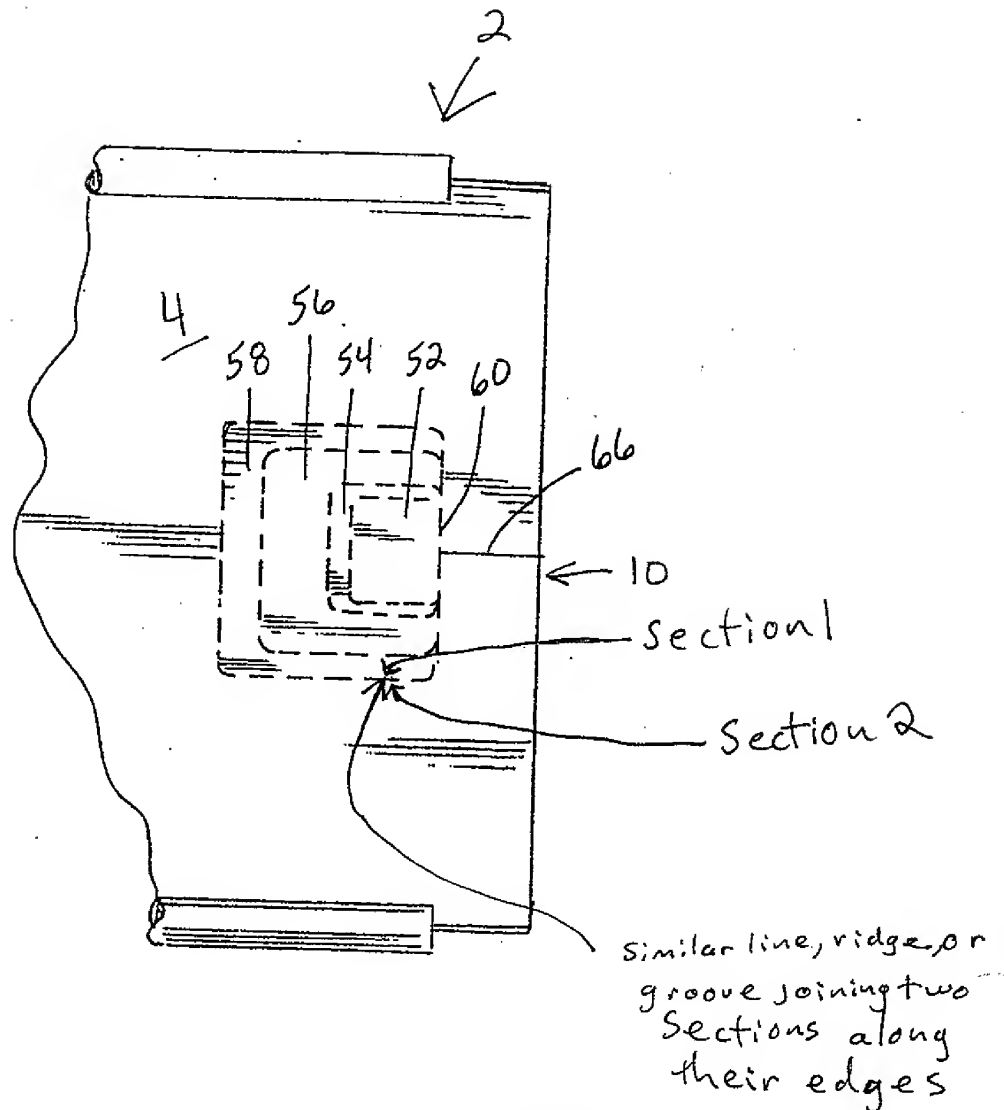 2
4
56
58
54
52
60
66
10
Section 1
Section 2
Similar line, ridge, or
groove joining two
Sections along
their edges